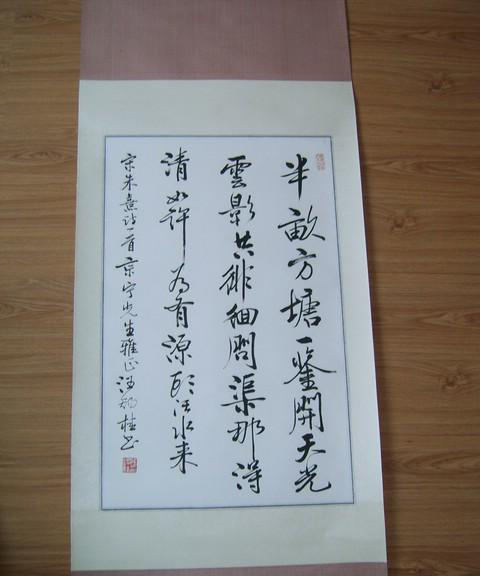 半畝方塘一鑒開天光
雲影共徘徊問渠那得
清如許為有源頭活水来
宋朱熹诗一首京宁先生雅正汪锡桂书